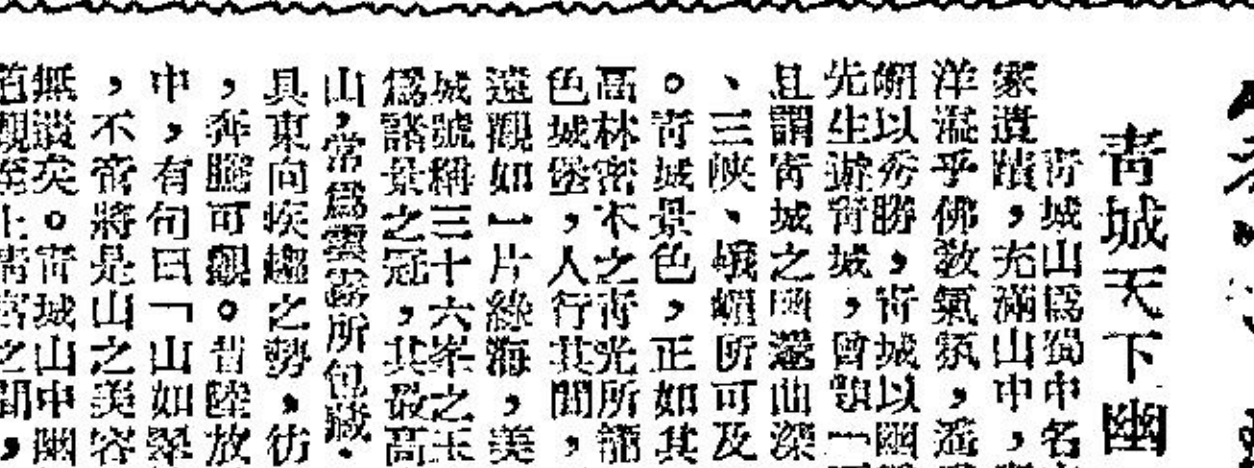 青城天下幽
青城山爲蜀中名
家遺蹟，充滿山中，
洋溢乎佛敎氣氛，遙
嵋以秀勝，靑城以幽
先生遊靑城，曾題一
且謂靑城之幽邃曲深
、三峽、峨嵋所可及
。靑城景色，正如其
高林密木之靑光所籠
色城堡，人行其間，
遠觀如一片綠海，美
城號稱三十六峯之玉
爲諸景之冠，其最高
山，常爲雲霧所包藏，
具東向疾趨之勢，彷
，奔騰可觀。昔陸放
中，有句曰「山如翠
，不啻將是山之美容
無遺矣。靑城山中幽
觀至上淸宮之間，